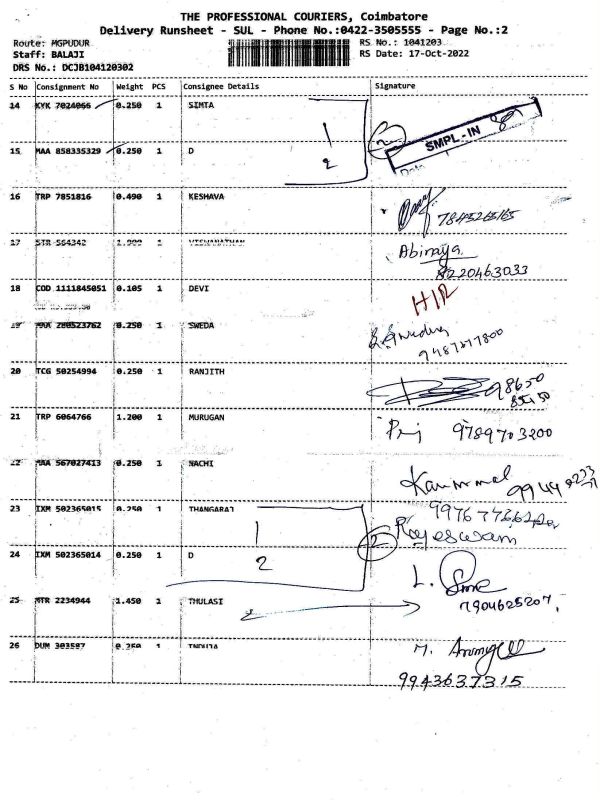 THE PROFESSIONAL COURIERS, Coimbatore
Delivery Runsheet - SUL - Phone No.:0422-3505555 - Page No.:2
Route: MGPUDUR RS No.: 1041203
Staff: BALAJI RS Date: 17-Oct-2022
DRS No.: DCJB104120302
S No Consignment No Weight PCS Consignee Details Signature
14 KYK 7024066 0.250 1 SIMTA
1 2 SMPL-IN
15 MAA 858335329 0.250 1 D
2
16 TRP 7851816 0.490 1 KESHAVA
17 STR 564342 1 Abinaya
8220463033
18 COD 1111845051 0.105 1 DEVI HIR
19 MAA 280523762 0.250 1 SWEDA
20 TCG 50254994 0.250 1 RANJITH 98650
21 TRP 6064766 1.200 1 MURUGAN 9789703200
22 MAA 567027413 0.250 1 NACHI
23 IXM 502365015 0.250 1 THANGARAJ
1 2 Rajeswari
24 IXM 502365014 0.250 1 D
2
25 MTR 2234944 1.450 1 THULASI 2
7904625207
26 DUM 303587 0.250 1 INDUJA
9943637315